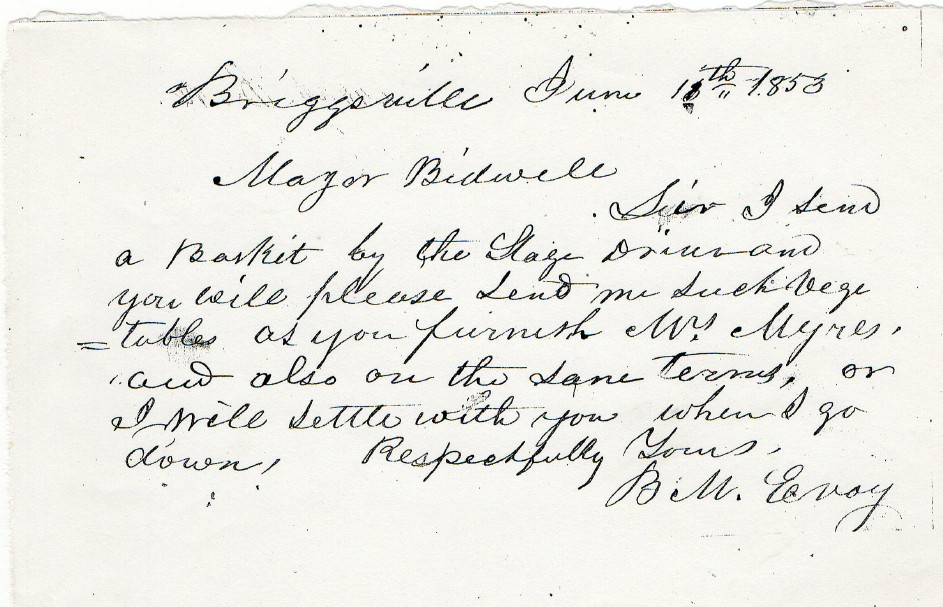 Briggsville June 18th 1853
Mayor Bidwell
Sir I send
a Baskit by the Stage Driver and
you will please send me such Vege
= tables as you furnish Mrs Myres,
and also on the same terms, or
I Will settle with you when I go
down, Respectfully Yours,
B M. Evoy